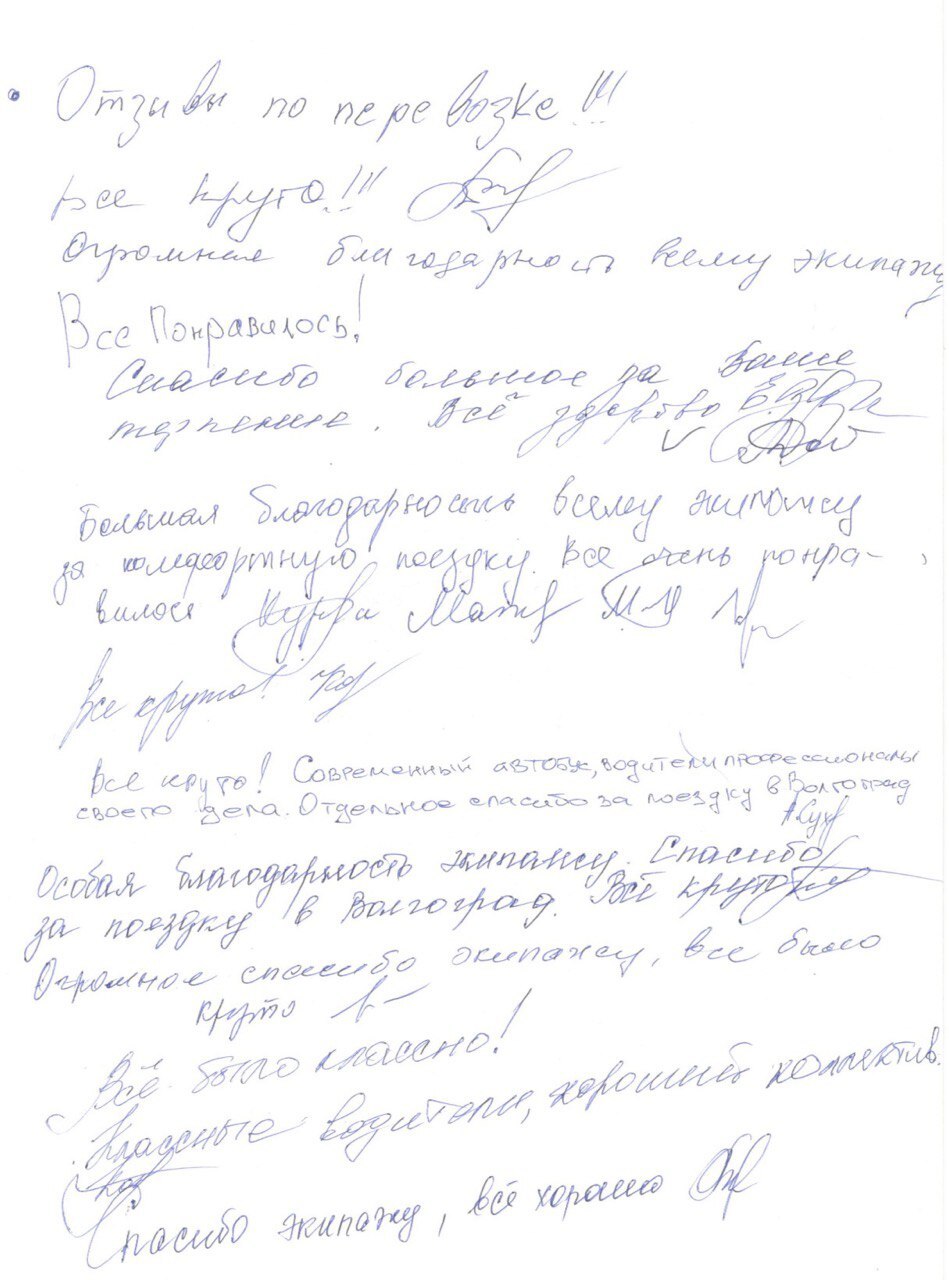 Отзывы по перевозке!!!
Все круто!!!
Огромная благодарность всему экипажу
Все Понравилось!
Спасибо большое за Ваше
терпение. Всё здорово
Большая благодарность всему экипажу
за комфортную поездку. Все очень понра-
вилося
Все круто!
Все круто! Современный автобус, водители профессионалы
своего дела. Отдельное спасибо за поездку в Волгоград
Особая благодарность экипажу. Спасибо
за поездку в Волгоград. Всё круто
Огромное спасибо экипажу, все было
круто
Всё было классно!
Классные водители, хороший коллектив.
Спасибо экипажу, всё хорошо